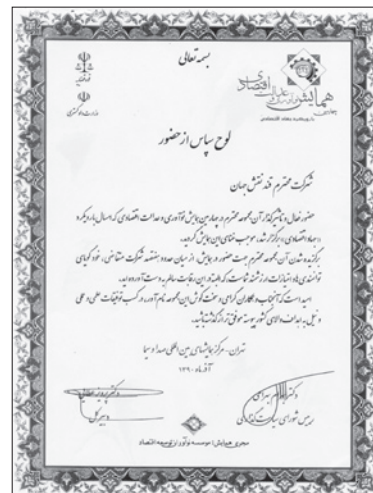 بسمه تعالی
قوه قضاییه
وزارت دادگستری
چهارمین
همایش نوآوری و عدالت اقتصادی
با رویکرد جهاد اقتصادی
لوح سپاس از حضور
شرکت محترم قند نقش جهان
حضور فعال و تاثیرگذار آن مجموعه محترم در چهارمین همایش نوآوری و عدالت اقتصادی که امسال با رویکرد
«جهاد اقتصادی» برگزار شد، موجب غنای این همایش گردید.
برگزیده شدن آن مجموعه محترم جهت حضور در همایش، از میان حدود هفتصد شرکت متقاضی، خود گویای
توانمندی‌ها و امتیازات ارزشمند شماست که البته در این رقابت سالم به دست آورده‌اید.
امید است که آنجناب و همکاران گرامی و سخت کوش این مجموعه نام آور، در کسب توفیقات علمی و عملی
و نیل به اهداف والای کشور پیوسته موفق تر از گذشته باشید.
تهران - مرکز همایشهای بین المللی صدا و سیما
آذر ماه ۱۳۹۰
دکتر
رییس شورای سیاست گذاری
دکتر
دبیر کل
مجری همایش: موسسه نوآوران توسعه اقتصاد